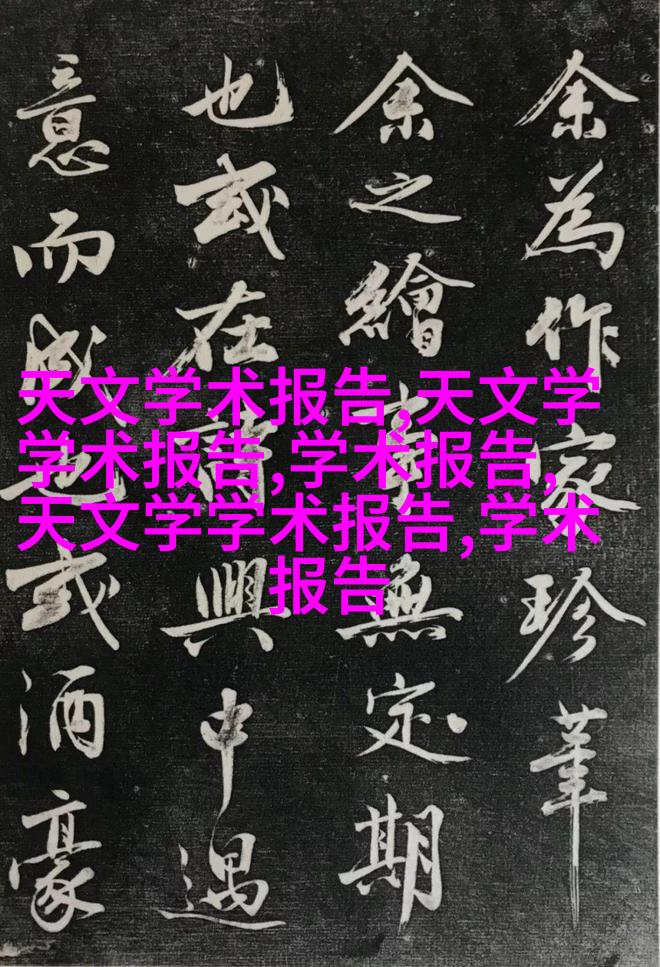 余為作家珍筆
余之繪事無定期
也或在興中遇
意而成也或酒豪
天文学术报告,天文学
学术报告,学术报告,
天文学学术报告,学术
报告